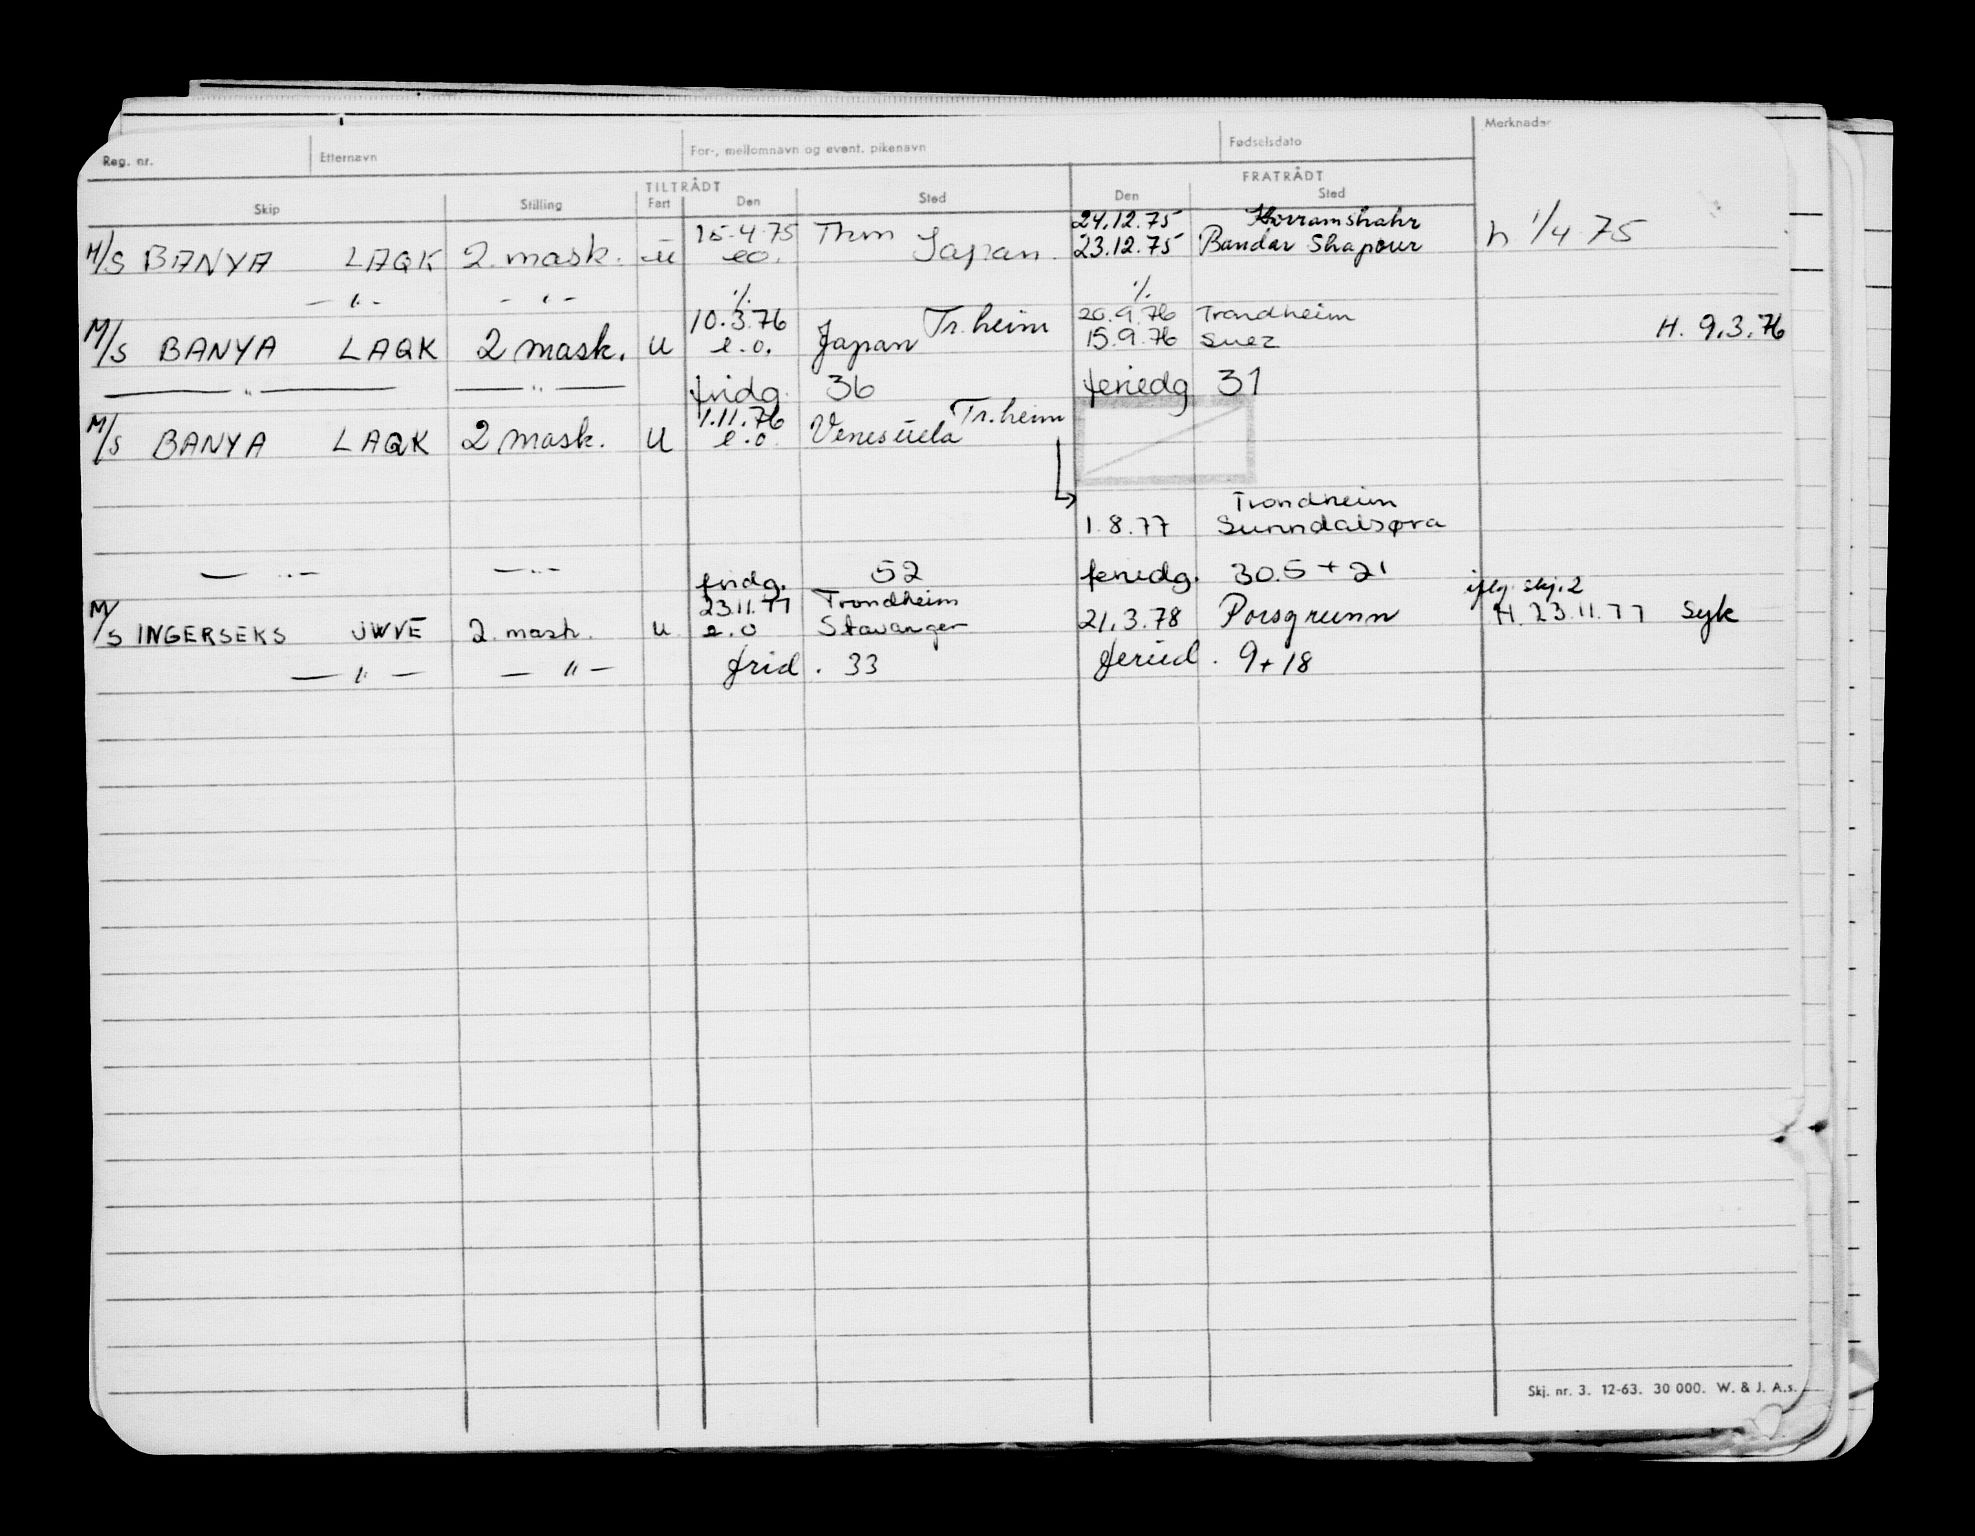 Reg. nr. Etternavn For-, mellomnavn og event. pikenavn Fødselsdato Merknader
TILTRÅDT FRATRÅDT
Skip Stilling Fart Den Sted Den Sted
15.4.75 Thm 24.12.75 Khorramshahr
M/S BANYA LAQK 2. mask. u eo. Japan. 23.12.75 Bandar Shapour h 1/4 75
— " — — " — ./. ./.
10.3.76 Tr.heim 20.9.76 Trondheim
M/S BANYA LAQK 2 mask. u e.o. Japan 15.9.76 Suez H. 9.3.76
— " — — " — fridg. 36 feriedg 31
1.11.76 Tr.heim
M/S BANYA LAQK 2 mask. u e.o. Venesuela
Trondheim
1.8.77 Sunndalsøra
— " — — " — fridg. 52 feriedg. 30.5 + 21
23.11.77 Trondheim iflg. skj. 2
M/S INGERSEKS JWVE 2. mask. u e.o Stavanger 21.3.78 Porsgrunn H. 23.11.77 Syk
— " — — " — frid. 33 feried. 9+18
Skj. nr. 3. 12-63. 30 000. W. & J. A.s.